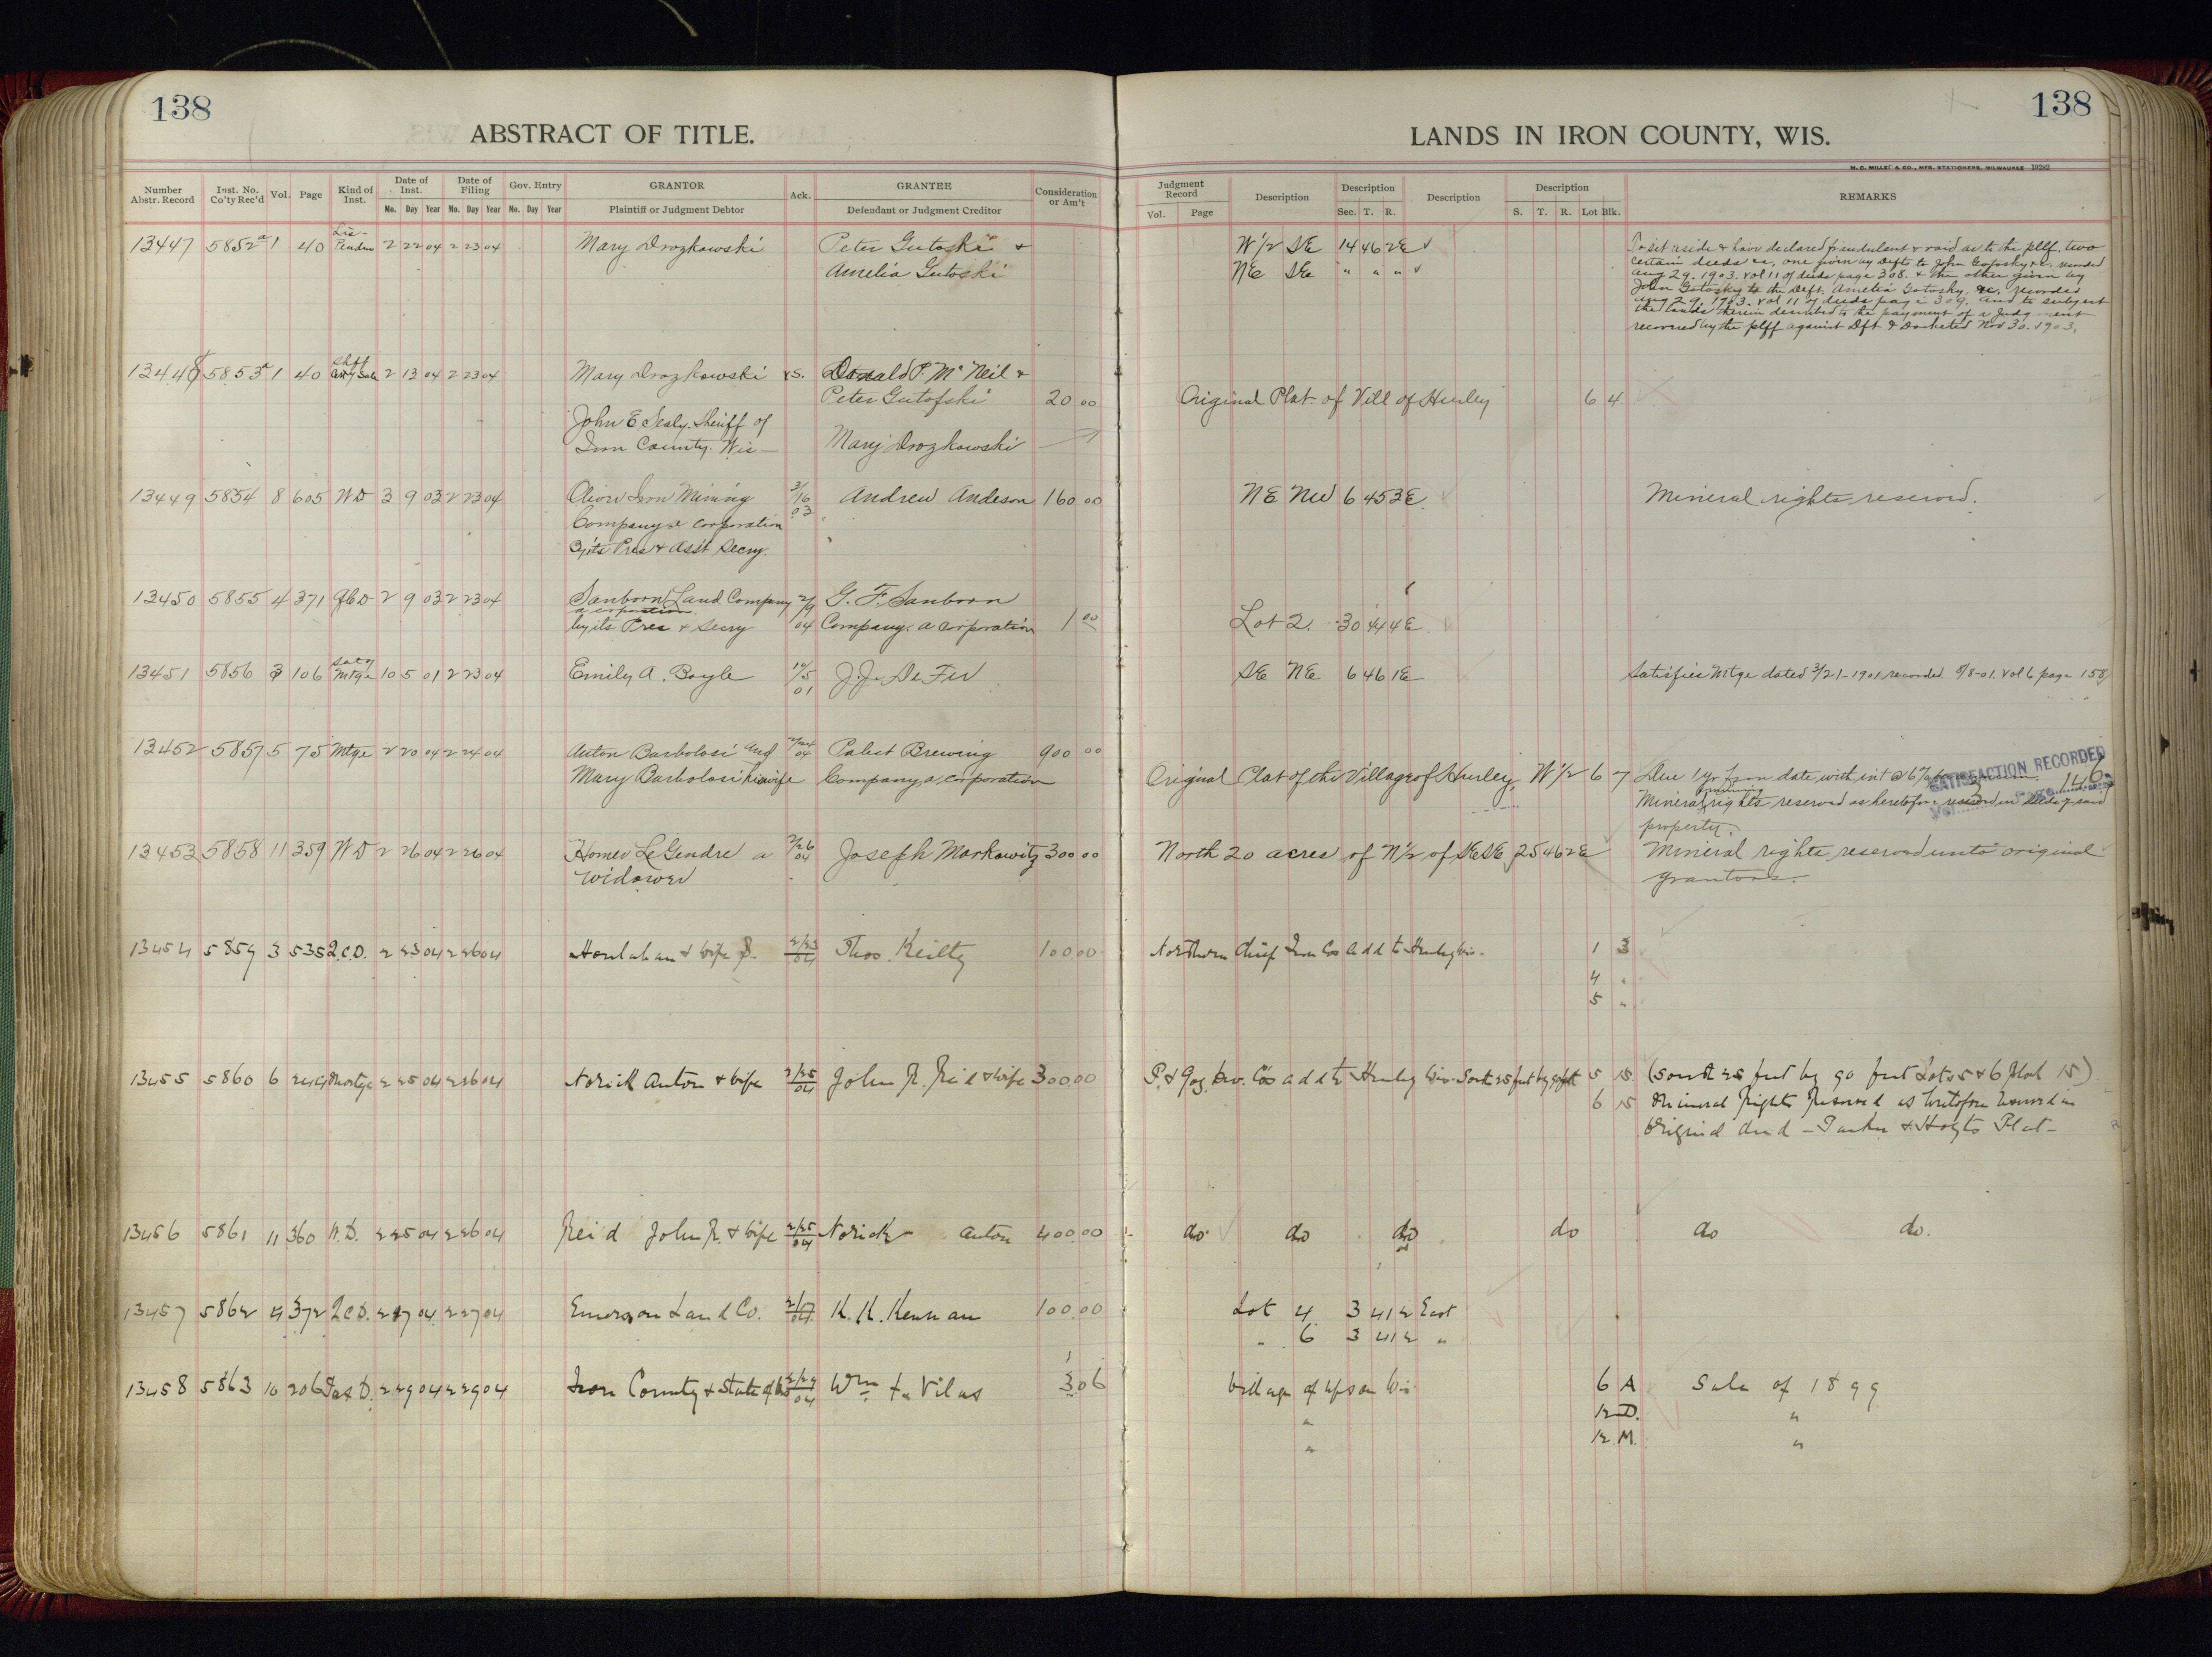 138
138
ABSTRACT OF TITLE.
LANDS IN IRON COUNTY, WIS.
M. C. MILLET & CO., MFG. STATIONERS, MILWAUKEE 19282
Number Abstr. Record Inst. No. Co'ty Rec'd Vol. Page Kind of Inst. Date of Inst. Mo. Day Year Date of Filing Mo. Day Year Gov. Entry Mo. Day Year GRANTOR Plaintiff or Judgment Debtor Ack. GRANTEE Defendant or Judgment Creditor Consideration or Am't
Judgment Record Vol. Page Description Description Sec. T. R. Description Description S. T. R. Lot Blk. REMARKS
13447 5852a 1 40 Lis Penden 2 22 04 2 23 04 Mary Drozkowski Peter Gutoski & W 1/2 SE 14 46 2E To set aside & have declared fraudulent & void as to the plff. two
Amelia Gutoski NE SE " " " certain deeds &c, one given by Defts to John Gotosky &c. recorded
Aug 29. 1903. vol 11 of deeds page 308. & the other given by
John Gotosky to the Deft. Amelia Gotosky, &c. recorded
Aug 29. 1903. vol 11 of deeds page 309. and to subject
the lands therein described to the payment of a judgment
recovered by the plff against Dft & Docketed Nov 30. 1903.
13448 5853a 1 40 2 13 04 2 23 04 Mary Drozkowski vs. Donald P. McNeil &
Peter Gutofski 20 00 Original Plat of Vill of Hurley 6 4
John E Sealy. Sheriff of
Iron County. Wis — Mary Drozkowski
13449 5854 8 605 WD 3 9 03 2 23 04 Oliver Iron Mining 3/16 03 Andrew Andeson 160 00 NE NW 6 45 3E Mineral rights reserved.
Company a corporation
By its Pres & Ass't Secry.
13450 5855 4 371 QCD 2 9 03 2 23 04 Sanborn Land Company 2/9 04 G. F. Sanborn
a corporation
by its Pres & Secry Company. a corporation 1 00 Lot 2. 30 44 4E
13451 5856 3 106 Sat of Mtge 10 5 01 2 23 04 Emily A. Boyle 10/5 01 J. J. DeFer SE NE 6 46 1E Satisfies Mtge dated 3/21-1901 recorded 8/8-01. vol 6 page 158
13452 5857 5 75 Mtge 2 20 04 2 24 04 Anton Barbolosi and 2/24 04 Pabst Brewing 900 00
Mary Barbolosi his wife Company, a corporation Original Plat of the Village of Hurley, W 1/2 6 7 Due 1 yr from date with int @ 6%
SATISFACTION RECORDED
Vol. Page 146
Mineral & mining rights reserved as heretofore reserved in deeds of said
property.
13453 5858 11 359 WD 2 26 04 2 26 04 Homer LeGendre a 2/26 04 Joseph Markowitz 300 00 North 20 acres of N 1/2 of SE SE 25 46 2E Mineral rights reserved unto original
widower grantors.
13454 5859 3 535 Q.C.D. 2 23 04 2 26 04 Houlahan & wife 2/23 04 Thos. Keilty 100 00 Northern Chief Iron Cos Add to Hurley Wis. 1 3
4 "
5 "
13455 5860 6 Mortge 2 25 04 2 26 04 Norick Anton & wife 2/25 04 John R. Reid & wife 300.00 add to Hurley Wis. South 25 feet by 90 feet 5 15 (South 25 feet by 90 feet Lots 5 & 6 Block 15)
6 15 Mineral Rights Reserved as heretofore reserved in
Original deed — Parker & Hoyts Plat —
13456 5861 11 360 W.D. 2 25 04 2 26 04 Reid John R. & wife 2/25 04 Norick Anton 400.00 do do do do do do.
13457 5862 4 372 Q.C.D. 2 27 04 2 27 04 Emerson Land Co. K. K. Kennan 100.00 Lot 4 3 41 2 East
" 6 3 41 2 "
13458 5863 10 206 Tax D. 2 29 04 2 29 04 Iron County & State of Wis 2/29 04 Wm F. Vilas 3 06 Village of Upson Wis. 6 A Sale of 1899
" 12 D. "
" 12 M. "